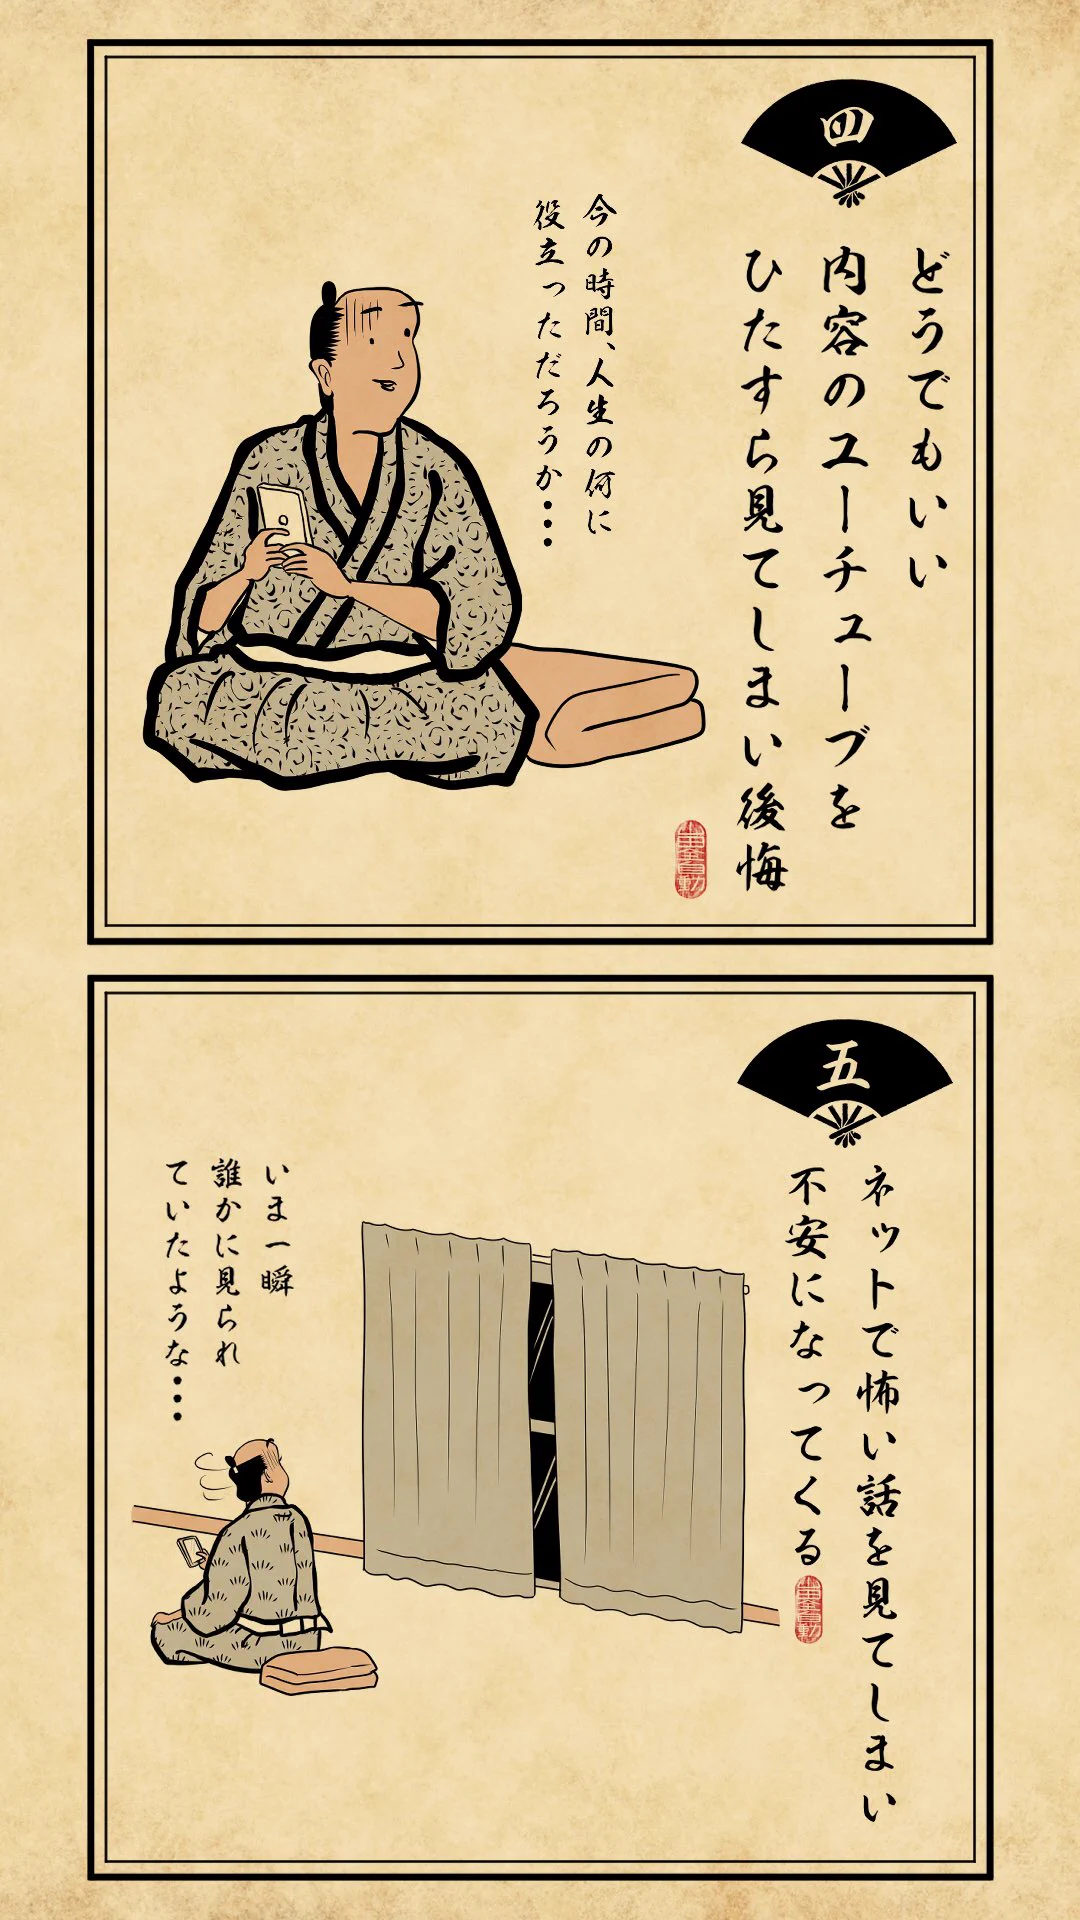 四
どうでもいい
内容のユーチューブを
ひたすら見てしまい後悔
今の時間、人生の何に
役立っただろうか・・・
五
ネットで怖い話を見てしまい
不安になってくる
いま一瞬
誰かに見られ
ていたような・・・